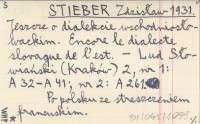 S
STIEBER Zdzisław 1931.
Jeszcze o dialekcie wschodniosło-
wackim. Encore le dialecte
slovaque de l'est. - Lud Sło-
wiański (Kraków) 2, nr 1:
A 32-A 41; nr 2: A 261.
Po polsku ze streszczeniem
francuskim.